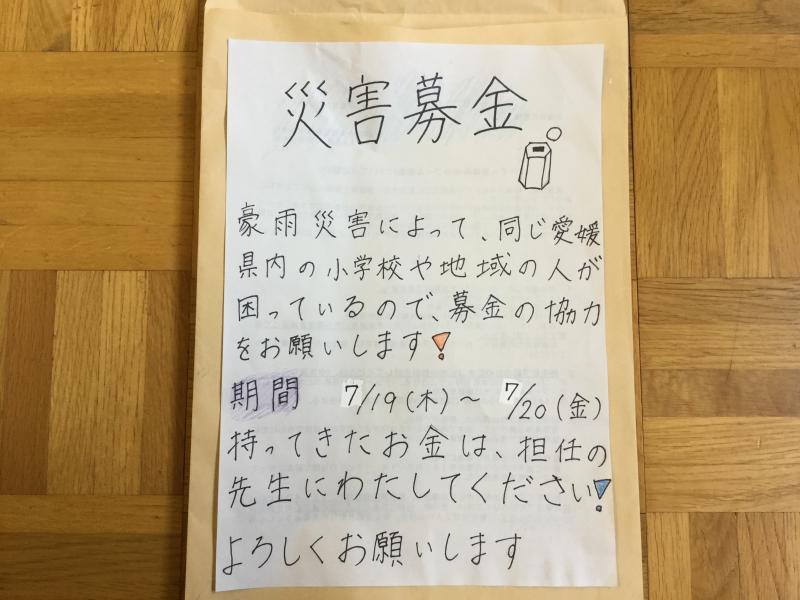 災害募金
豪雨災害によって、同じ愛媛
県内の小学校や地域の人が
困っているので、募金の協力
をお願いします!
期間 7/19(木)～7/20(金)
持ってきたお金は、担任の
先生にわたしてください!
よろしくお願いします